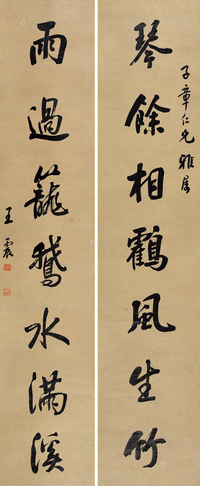 子章仁兄雅屬
琴餘相鶴風生竹
雨過籠鵝水滿溪
王震